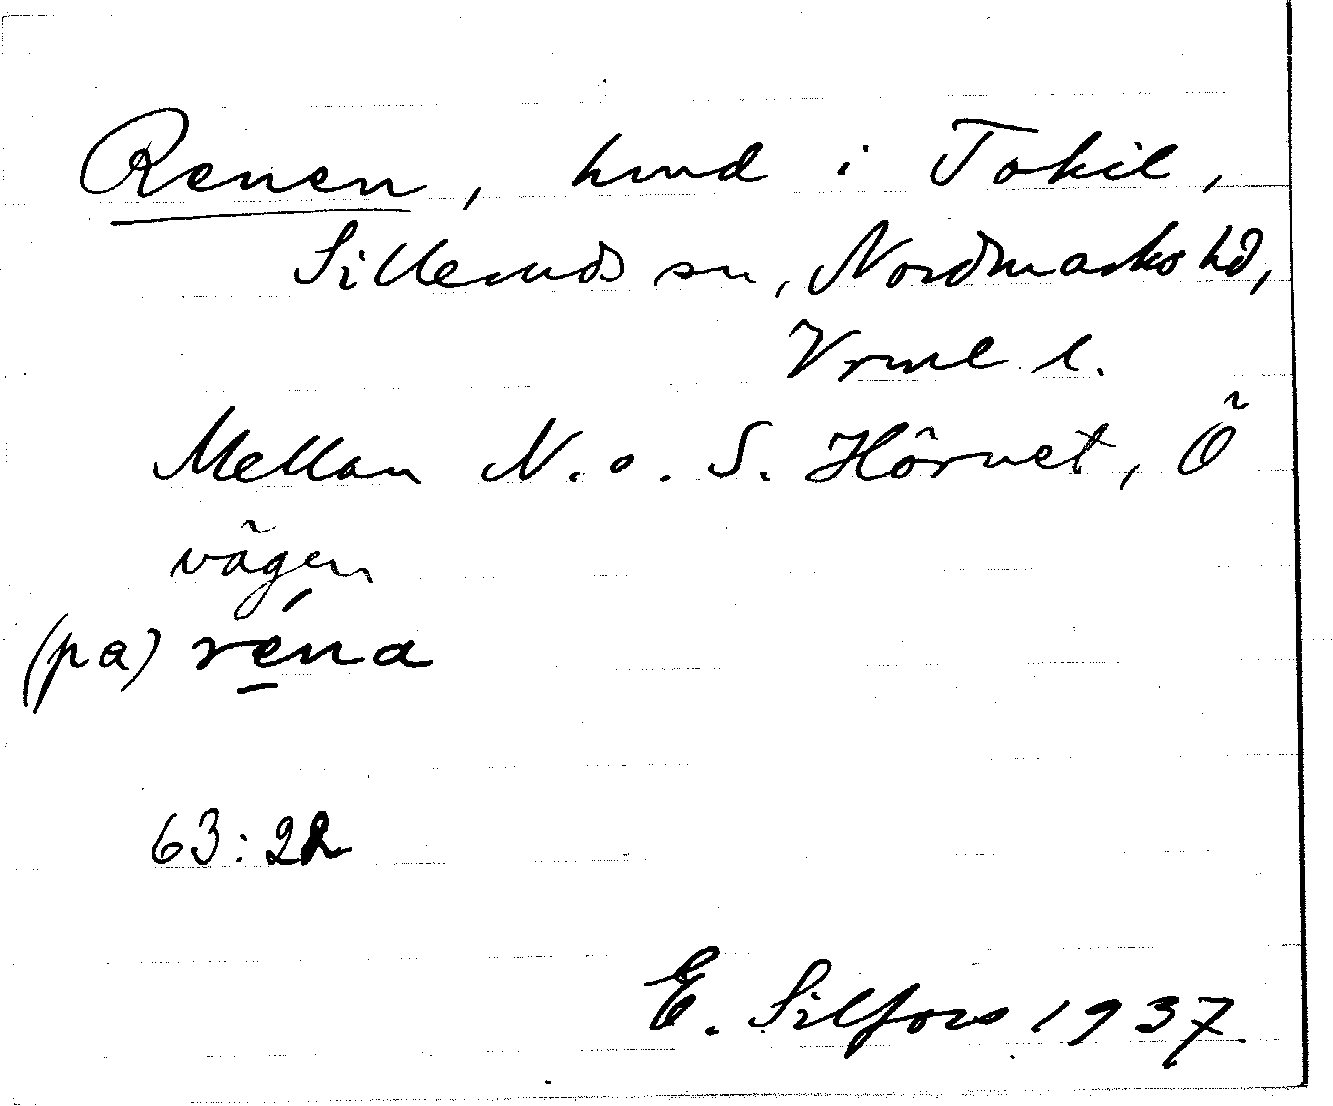 Renen, hmd i Tokil,
Silleruds sn, Nordmarks hd,
Vrml l.
Mellan N. o. S. Hörnet, Ö
vägen
(pa) réna
63:22
E. Silfors 1937